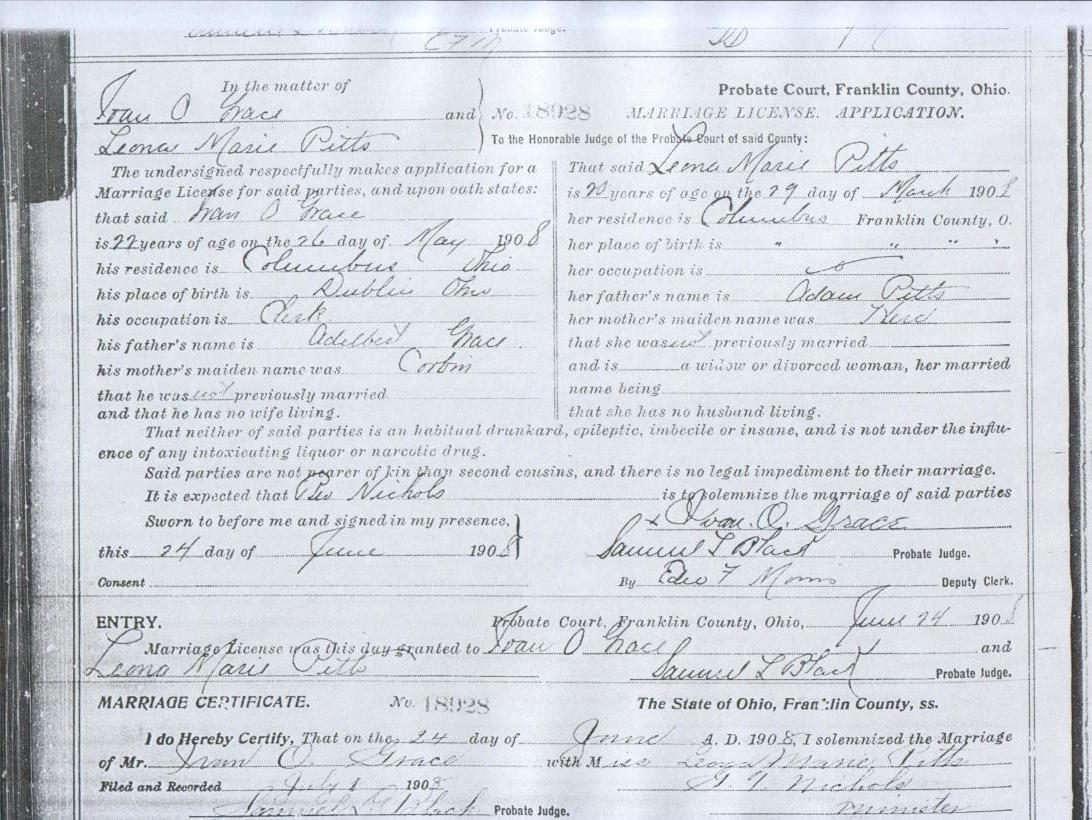 Probate Judge.
In the matter of
Ivan O Grace and
Leona Marie Pitts
No. 18928
Probate Court, Franklin County, Ohio.
MARRIAGE LICENSE. APPLICATION.
To the Honorable Judge of the Probate Court of said County:
The undersigned respectfully makes application for a
Marriage License for said parties, and upon oath states:
that said Ivan O Grace
is 22 years of age on the 26 day of May 1908
his residence is Columbus Ohio
his place of birth is Dublin Ohio
his occupation is Clerk
his father's name is Adelbert Grace
his mother's maiden name was Corbin
that he was not previously married
and that he has no wife living.
That said Leona Marie Pitts
is 20 years of age on the 29 day of March 1908
her residence is Columbus Franklin County, O.
her place of birth is " " " "
her occupation is
her father's name is Adam Pitts
her mother's maiden name was
that she was not previously married
and is a widow or divorced woman, her married
name being
that she has no husband living.
That neither of said parties is an habitual drunkard, epileptic, imbecile or insane, and is not under the influ-
ence of any intoxicating liquor or narcotic drug.
Said parties are not nearer of kin than second cousins, and there is no legal impediment to their marriage.
It is expected that Rev Nichols is to solemnize the marriage of said parties
Sworn to before me and signed in my presence,
this 24 day of June 1908
Consent
x Ivan. O. Grace
Samuel L Black Probate Judge.
By F Morris Deputy Clerk.
ENTRY.
Probate Court, Franklin County, Ohio, June 24 1908
Marriage License was this day granted to Ivan O Grace and
Leona Marie Pitts Samuel L Black Probate Judge.
MARRIAGE CERTIFICATE. No. 18928 The State of Ohio, Franklin County, ss.
I do Hereby Certify, That on the 24 day of June A. D. 1908, I solemnized the Marriage
of Mr. Ivan O. Grace with Miss Leona Marie Pitts
Filed and Recorded July 1 1908 G. T. Nichols
Samuel L Black Probate Judge. Minister